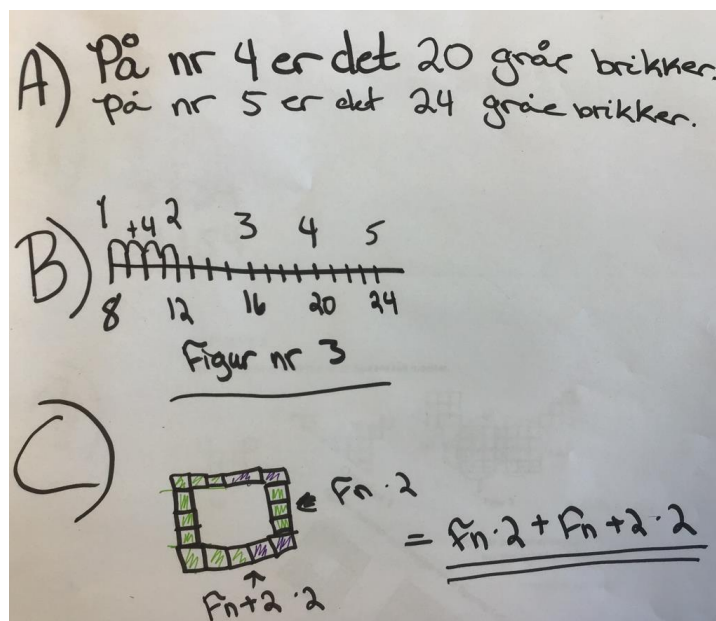 A) På nr 4 er det 20 gråe brikker.
på nr 5 er det 24 gråe brikker.
B)
1 +4 2 3 4 5
8 12 16 20 24
Figur nr 3
C)
Fn · 2
= Fn · 2 + Fn + 2 · 2
Fn + 2 · 2